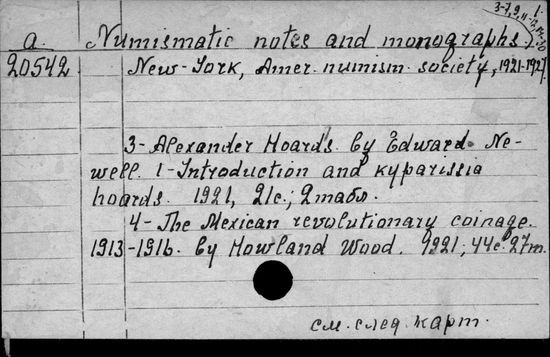 3-7, 9, 11-12, 14-
a. Numismatic notes and monographs.
20542 New-York, Amer. numism. society, 1921-1927.
3- Alexander Hoards. By Edward Ne-
well. 1- Introduction and kyparissia
hoards. 1921, 21c.; 2 табл.
4- The Mexican revolutionary coinage.
1913-1916. By Howland Wood. 1921, 44c. 27т.
см. след. карт.